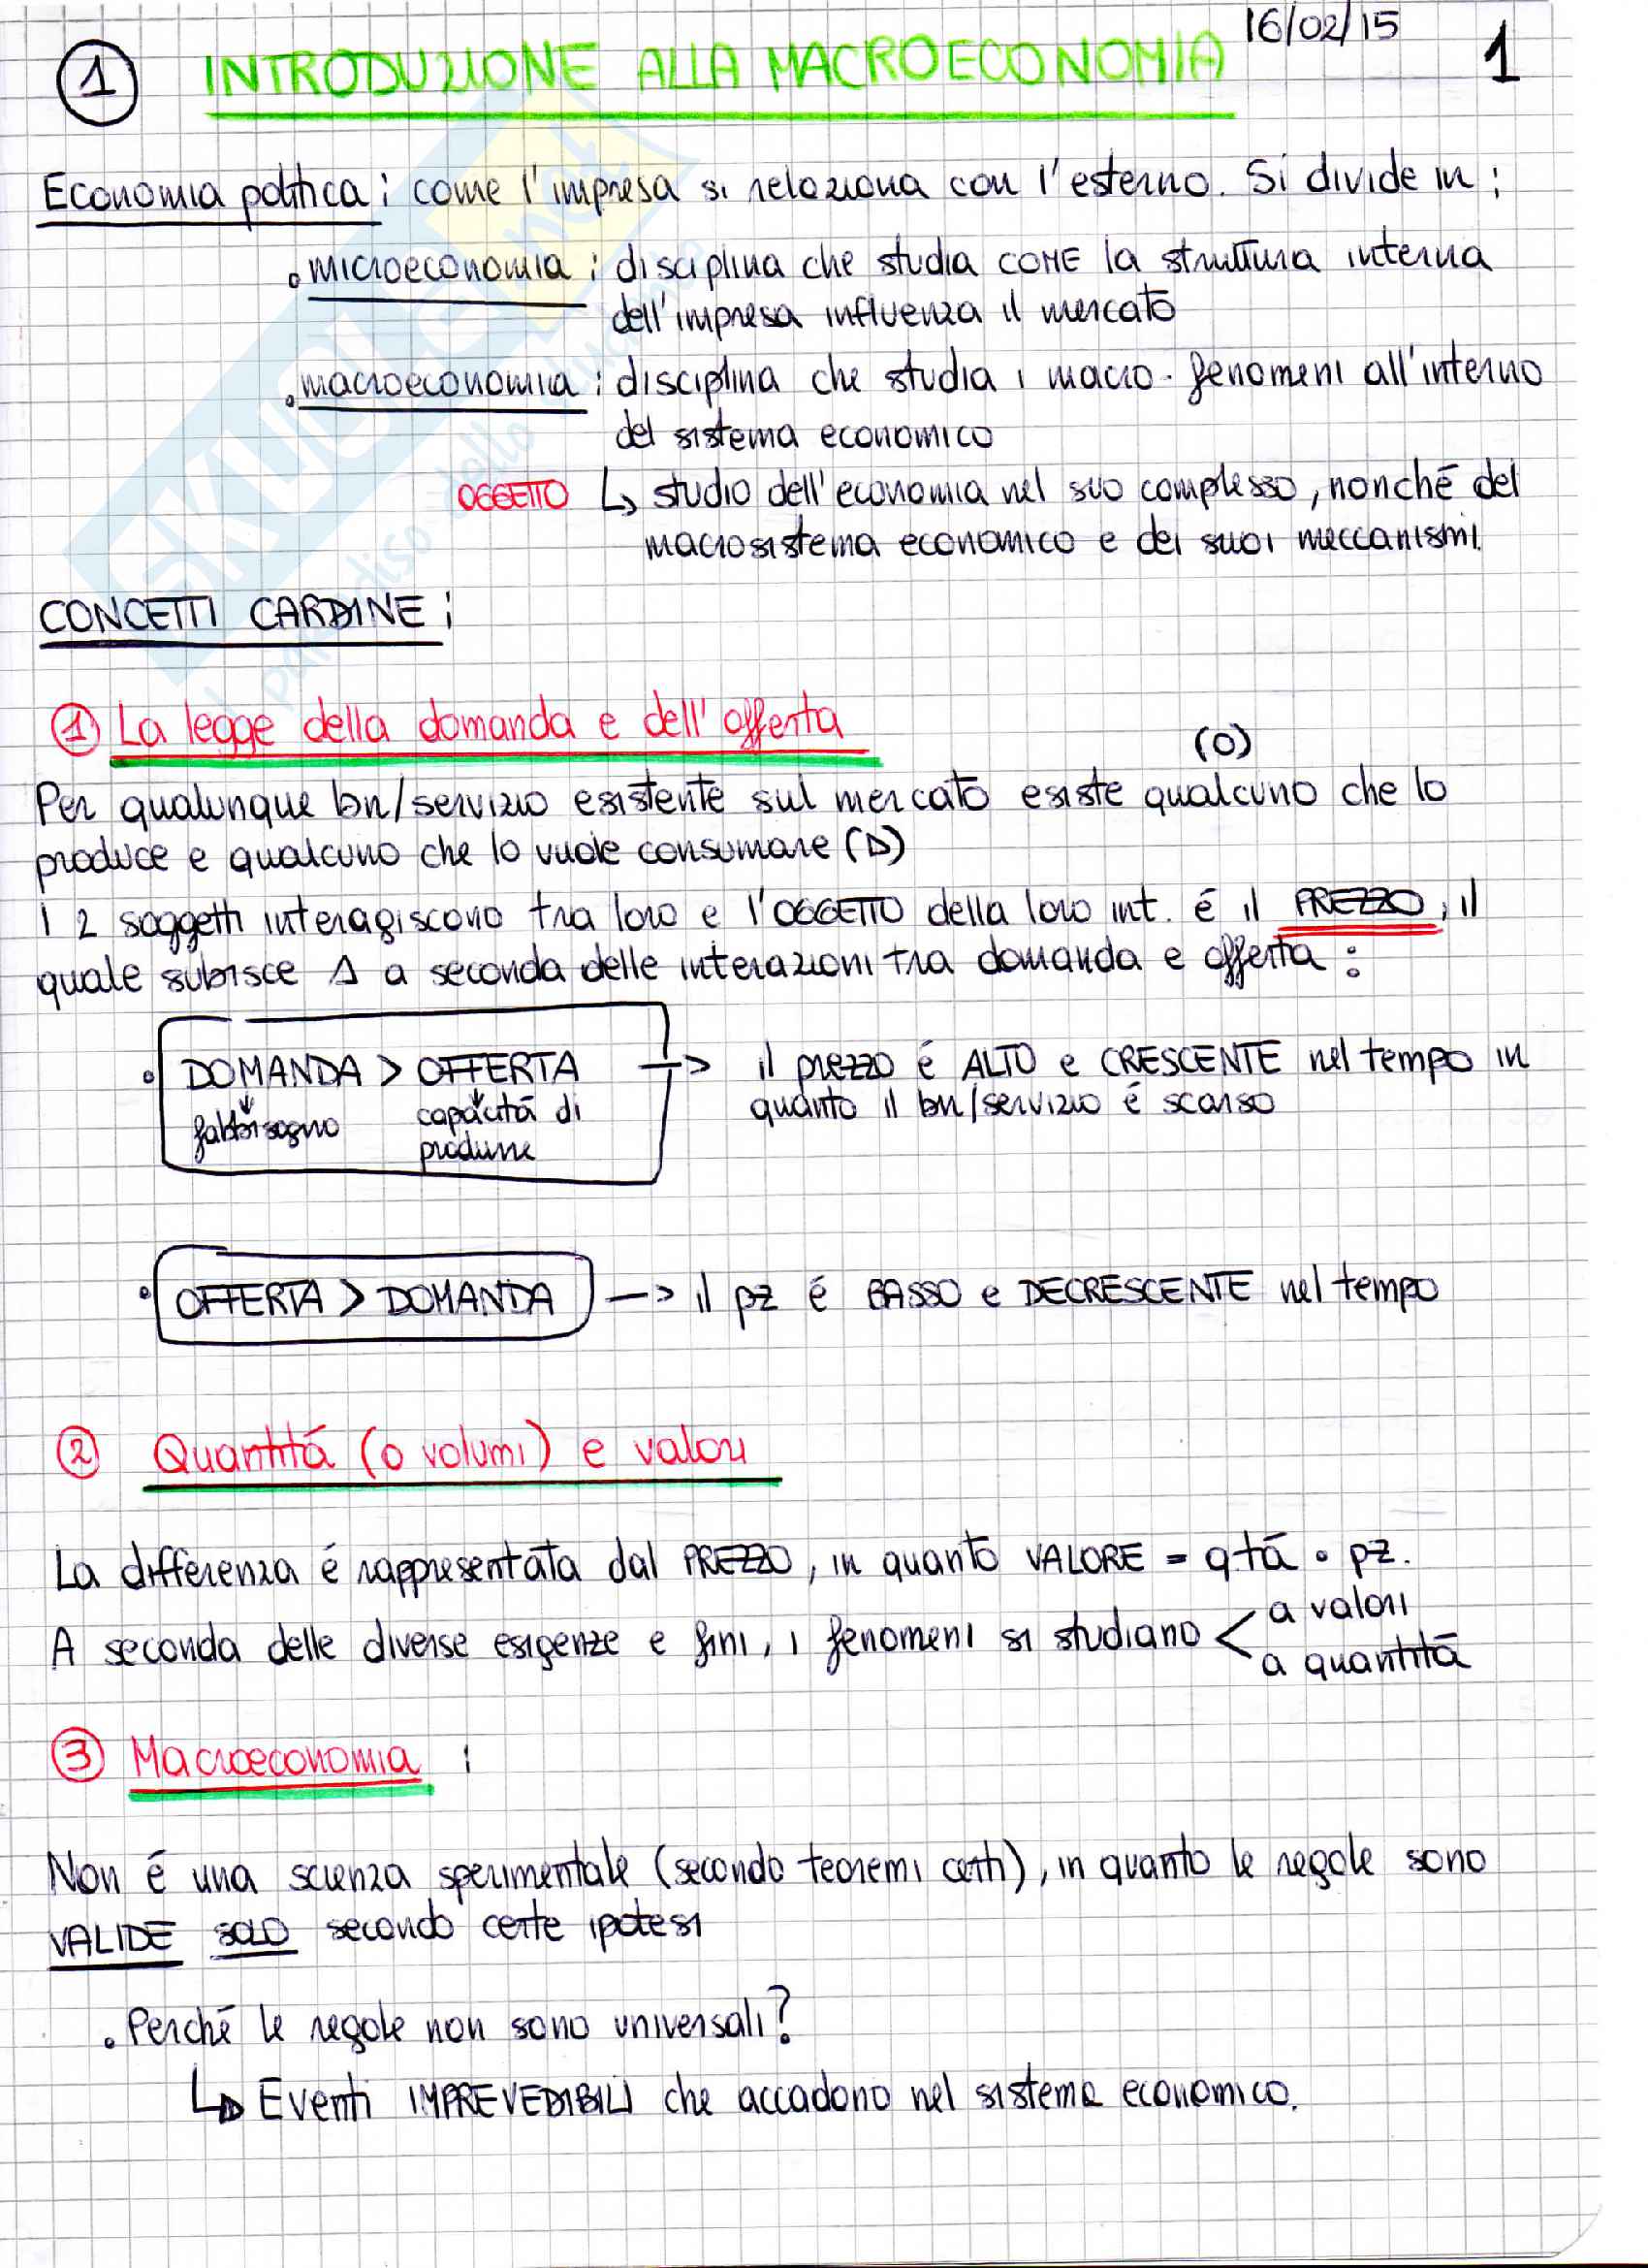 16/02/15
1 INTRODUZIONE ALLA MACROECONOMIA 1
Economia politica : come l'impresa si relaziona con l'esterno. Si divide in :
• microeconomia : disciplina che studia COME la struttura interna
dell'impresa influenza il mercato
• macroeconomia : disciplina che studia i macro-fenomeni all'interno
del sistema economico
OGGETTO ↳ studio dell'economia nel suo complesso, nonché del
macrosistema economico e dei suoi meccanismi.
CONCETTI CARDINE :
1 La legge della domanda e dell'offerta
(O)
Per qualunque bn/servizio esistente sul mercato esiste qualcuno che lo
produce e qualcuno che lo vuole consumare (D)
I 2 soggetti interagiscono tra loro e l'OGGETTO della loro int. é il PREZZO, il
quale subisce Δ a seconda delle interazioni tra domanda e offerta :
• DOMANDA > OFFERTA —> il prezzo é ALTO e CRESCENTE nel tempo in
↓ ↓ quanto il bn/servizio é scarso
fabbisogno capacitá di
produrre
• OFFERTA > DOMANDA —> il pz é BASSO e DECRESCENTE nel tempo
2 Quantitá (o volumi) e valori
La differenza é rappresentata dal PREZZO, in quanto VALORE = qtá • pz.
a valori
A seconda delle diverse esigenze e fini, i fenomeni si studiano <
a quantitá
3 Macroeconomia :
Non é una scienza sperimentale (secondo teoremi certi), in quanto le regole sono
VALIDE SOLO secondo certe ipotesi
• Perché le regole non sono universali?
↳ Eventi IMPREVEDIBILI che accadono nel sistema economico.
SKUOLA.net
il paradiso dello studente